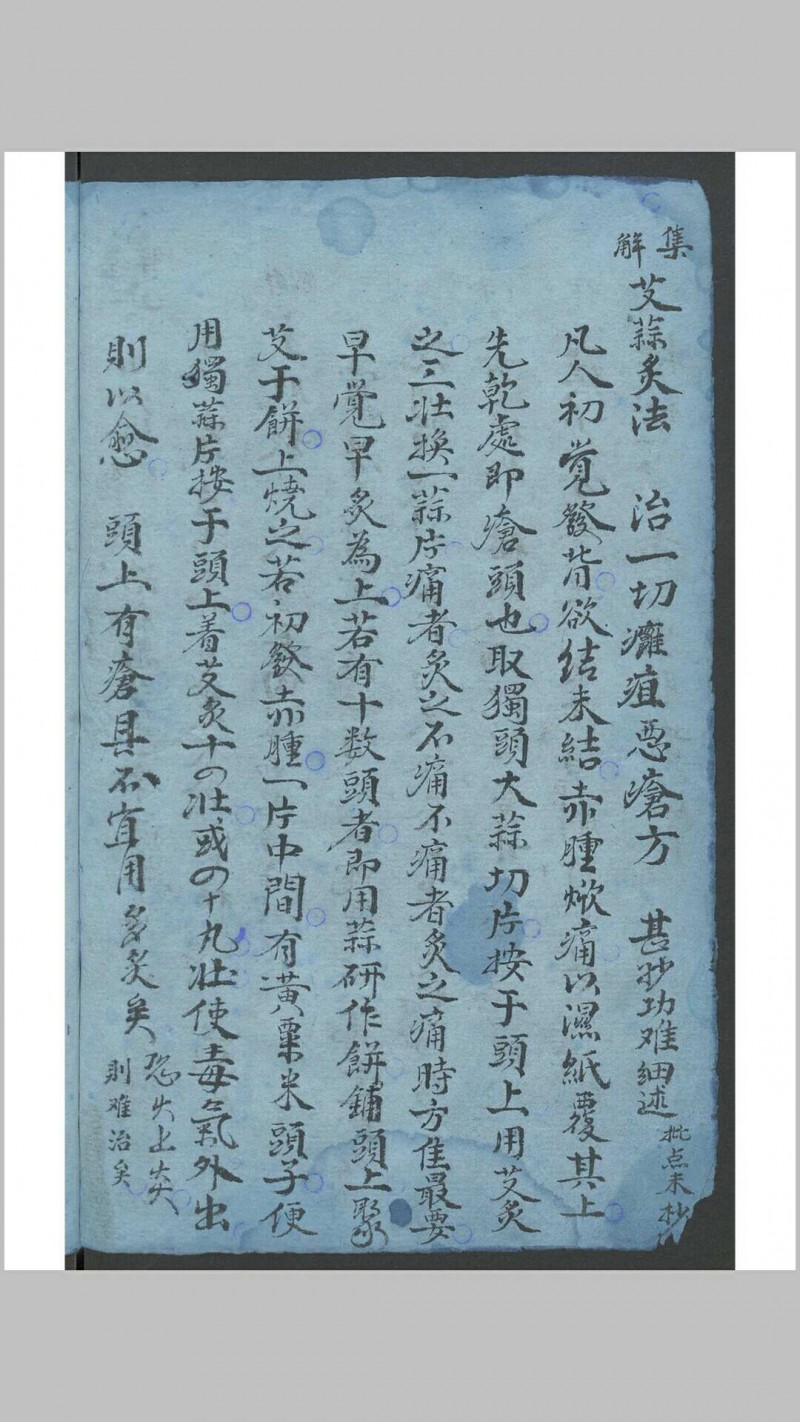 集解 艾蒜炙法 治一切癰疽惡瘡方 甚妙功难細述 批点未抄
凡人初覺發背欲结未結赤腫焮痛以濕紙覆其上
先乾處即瘡頭也取獨頭大蒜切片按于頭上用艾炙
之三壯换一蒜片痛者炙之不痛不痛者炙之痛時方住最要
早覺早炙為上若有十数頭者即用蒜研作餅鋪頭上聚
艾于餅上燒之若初發赤腫一片中間有黄粟米頭子便
用獨蒜片按于頭上着艾炙十四壯或四十九壯使毒氣外出
則以愈 頭上有瘡具不宜用多炙矣 恐火上炎則难治矣